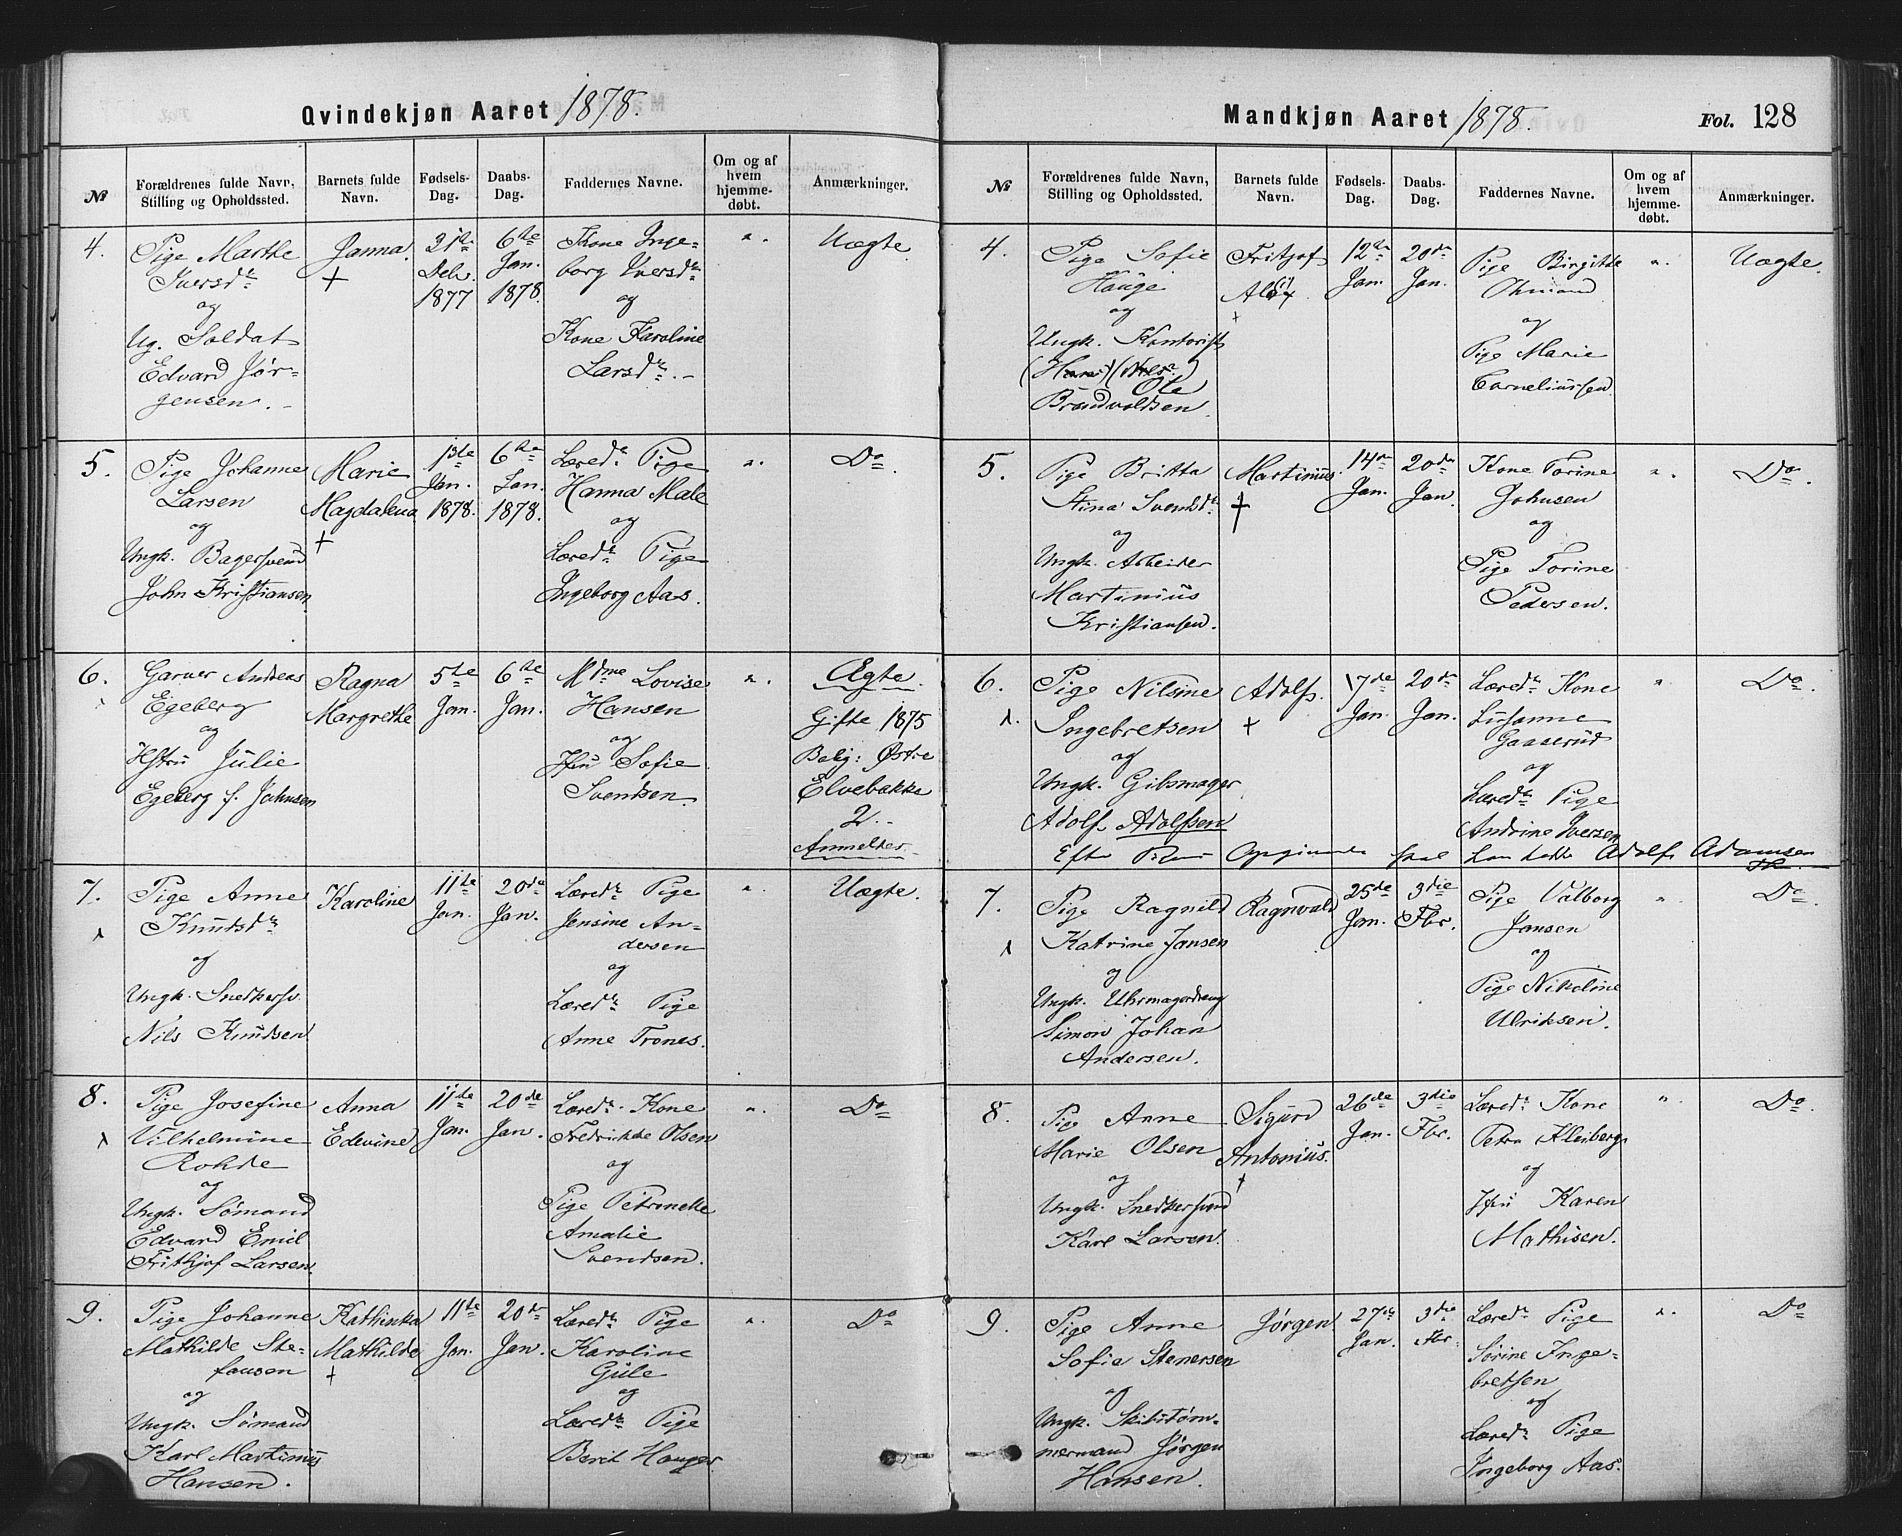 Qvindekjøn Aaret 1878.
№
Forældrenes fulde Navn, Stilling og Opholdssted.
Barnets fulde Navn.
Fødsels-Dag.
Daabs-Dag.
Faddernes Navne.
Om og af hvem hjemmedøbt.
Anmærkninger.
4.
Pige Marthe
Iversdr
og
Ug. Soldat
Edvard Jør-
gensen.
Janna.
+
21de
Debr.
1877
6te
Jan.
1878.
Kone Inge-
borg Iversdr
og
Kone Karoline
Larsdr.
".
Uægte.
5.
Pige Johanne
Larsen
og
Ungk. Bagersvend
John Kristiansen.
Marie
Magdalena
+
1ste
Jan.
1878.
6te
Jan.
1878.
Læredr Pige
Hanna Male
og
Læredr Pige
Ingeborg Aas.
".
Do.
6.
Garver Andreas
Egeberg
og
Hstru Julie
Egeberg f. Johnsen
Ragna
Margrethe
5te
Jan.
6te
Jan.
Mdme Lovise
Hansen
og
Jfru Sofie
Svendsen.
".
Ægte.
Gifte 1875
Bolig: Østre
Elvebakke
2.
Anmelder.
7.
Pige Anne
Knudsdr
og
Ungk. Snedkersv.
Nils Knudsen
Karoline
11te
Jan.
20de
Jan.
Læredr Pige
Jensine An-
dersen
og
Læredr Pige
Anne Trones.
".
Uægte.
8.
Pige Josefine
Vilhelmine
Rohde
og
Ungk. Sømand
Edvard Emil
Frithjof Larsen.
Anna
Edevine
11te
Jan.
20de
Jan.
Læredr. Kone
Fredrikke Olsen
og
Pige Petronelle
Amalie
Svendsen.
".
Do
9.
Pige Johanne
Mathilde Ste-
fansen
og
Ungk. Sømand
Karl Martinius
Hansen.
Kathinka
Mathilde
+
11te
Jan.
20de
Jan.
Læredr Pige
Karoline
Gule
og
Læredr Pige
Berit Hauger.
".
Do
Mandkjøn Aaret 1878.
Fol. 128
№
Forældrenes fulde Navn, Stilling og Opholdssted.
Barnets fulde Navn.
Fødsels-Dag.
Daabs-Dag.
Faddernes Navne.
Om og af hvem hjemmedøbt.
Anmærkninger.
4.
Pige Sofie
Hauge
og
Ungk. Kontorist
Ole
Brandvoldsen.
Fritjof
+
12te
Jan.
20de
Jan.
Pige Birgitte
og
Pige Marie
Corneliussen.
".
Uægte.
5.
Pige Britta
Stina Svendsdr.
og
Ungk. Arbeider
Martinius
Kristiansen.
Martinius
+
14de
Jan.
20de
Jan.
Kone Torine
Johnsen
og
Pige Torine
Pedersen.
".
Do.
6.
Pige Nilsine
Ingebretsen
og
Ungk. Gibsmager
Adolf Adolfsen
Adolf.
+
17de
Jan.
20de
Jan.
Læredr Kone
Susanne
Gaaserud
og
Læredr Pige
Andrine Iversen
".
Do.
Efter Opgivende skal han hedde Adolf Adamsen
7.
Pige Ragnild
Katrine Jansen
og
Ungk. Uhrmagerdreng
Simon Johan
Andersen.
Ragnvald
25de
Jan.
3die
Fbr.
Pige Valborg
Jansen
og
Pige Nikoline
Ulriksen.
".
Do
8.
Pige Anne
Marie Olsen
og
Ungk. Snedkersvend
Karl Larsen.
Sigurd
Antonius.
+
26de
Jan.
3die
Fbr.
Læredr Kone
Petra Kleiberg
og
Jfru Karen
Mathisen.
"
Do.
9.
Pige Anne
Sofie Stenersen
og
Ungk. Skibstøm-
mermand Jørgen
Hansen.
Jørgen.
27de
Jan.
3die
Fbr.
Læredr Pige
Sørine Inge-
bretsen
og
Læredr Pige
Ingeborg Aas.
".
Do